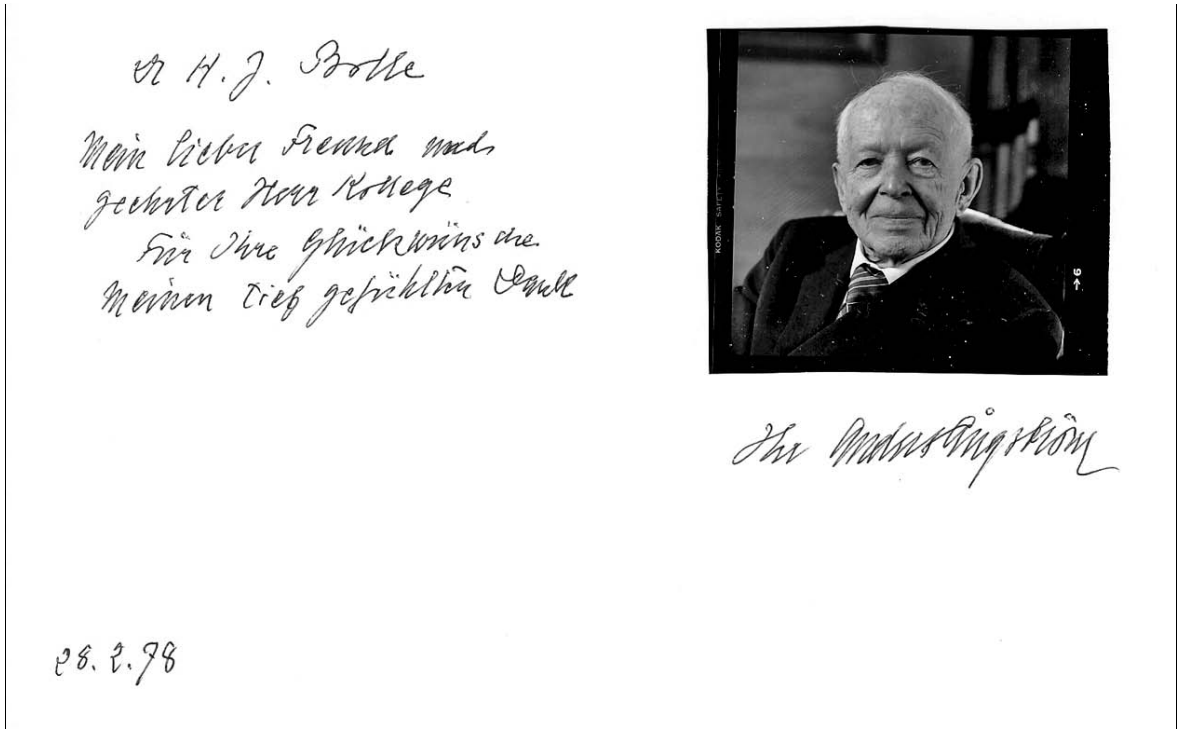 Dr H. J. Bolle
Mein lieber Freund und
geehrter Herr Kollege
Für Ihre Glückwünsche
meinen tief gefühlten Dank
KODAK SAFETY
→6
Ihr Anders Ångström
28.2.78